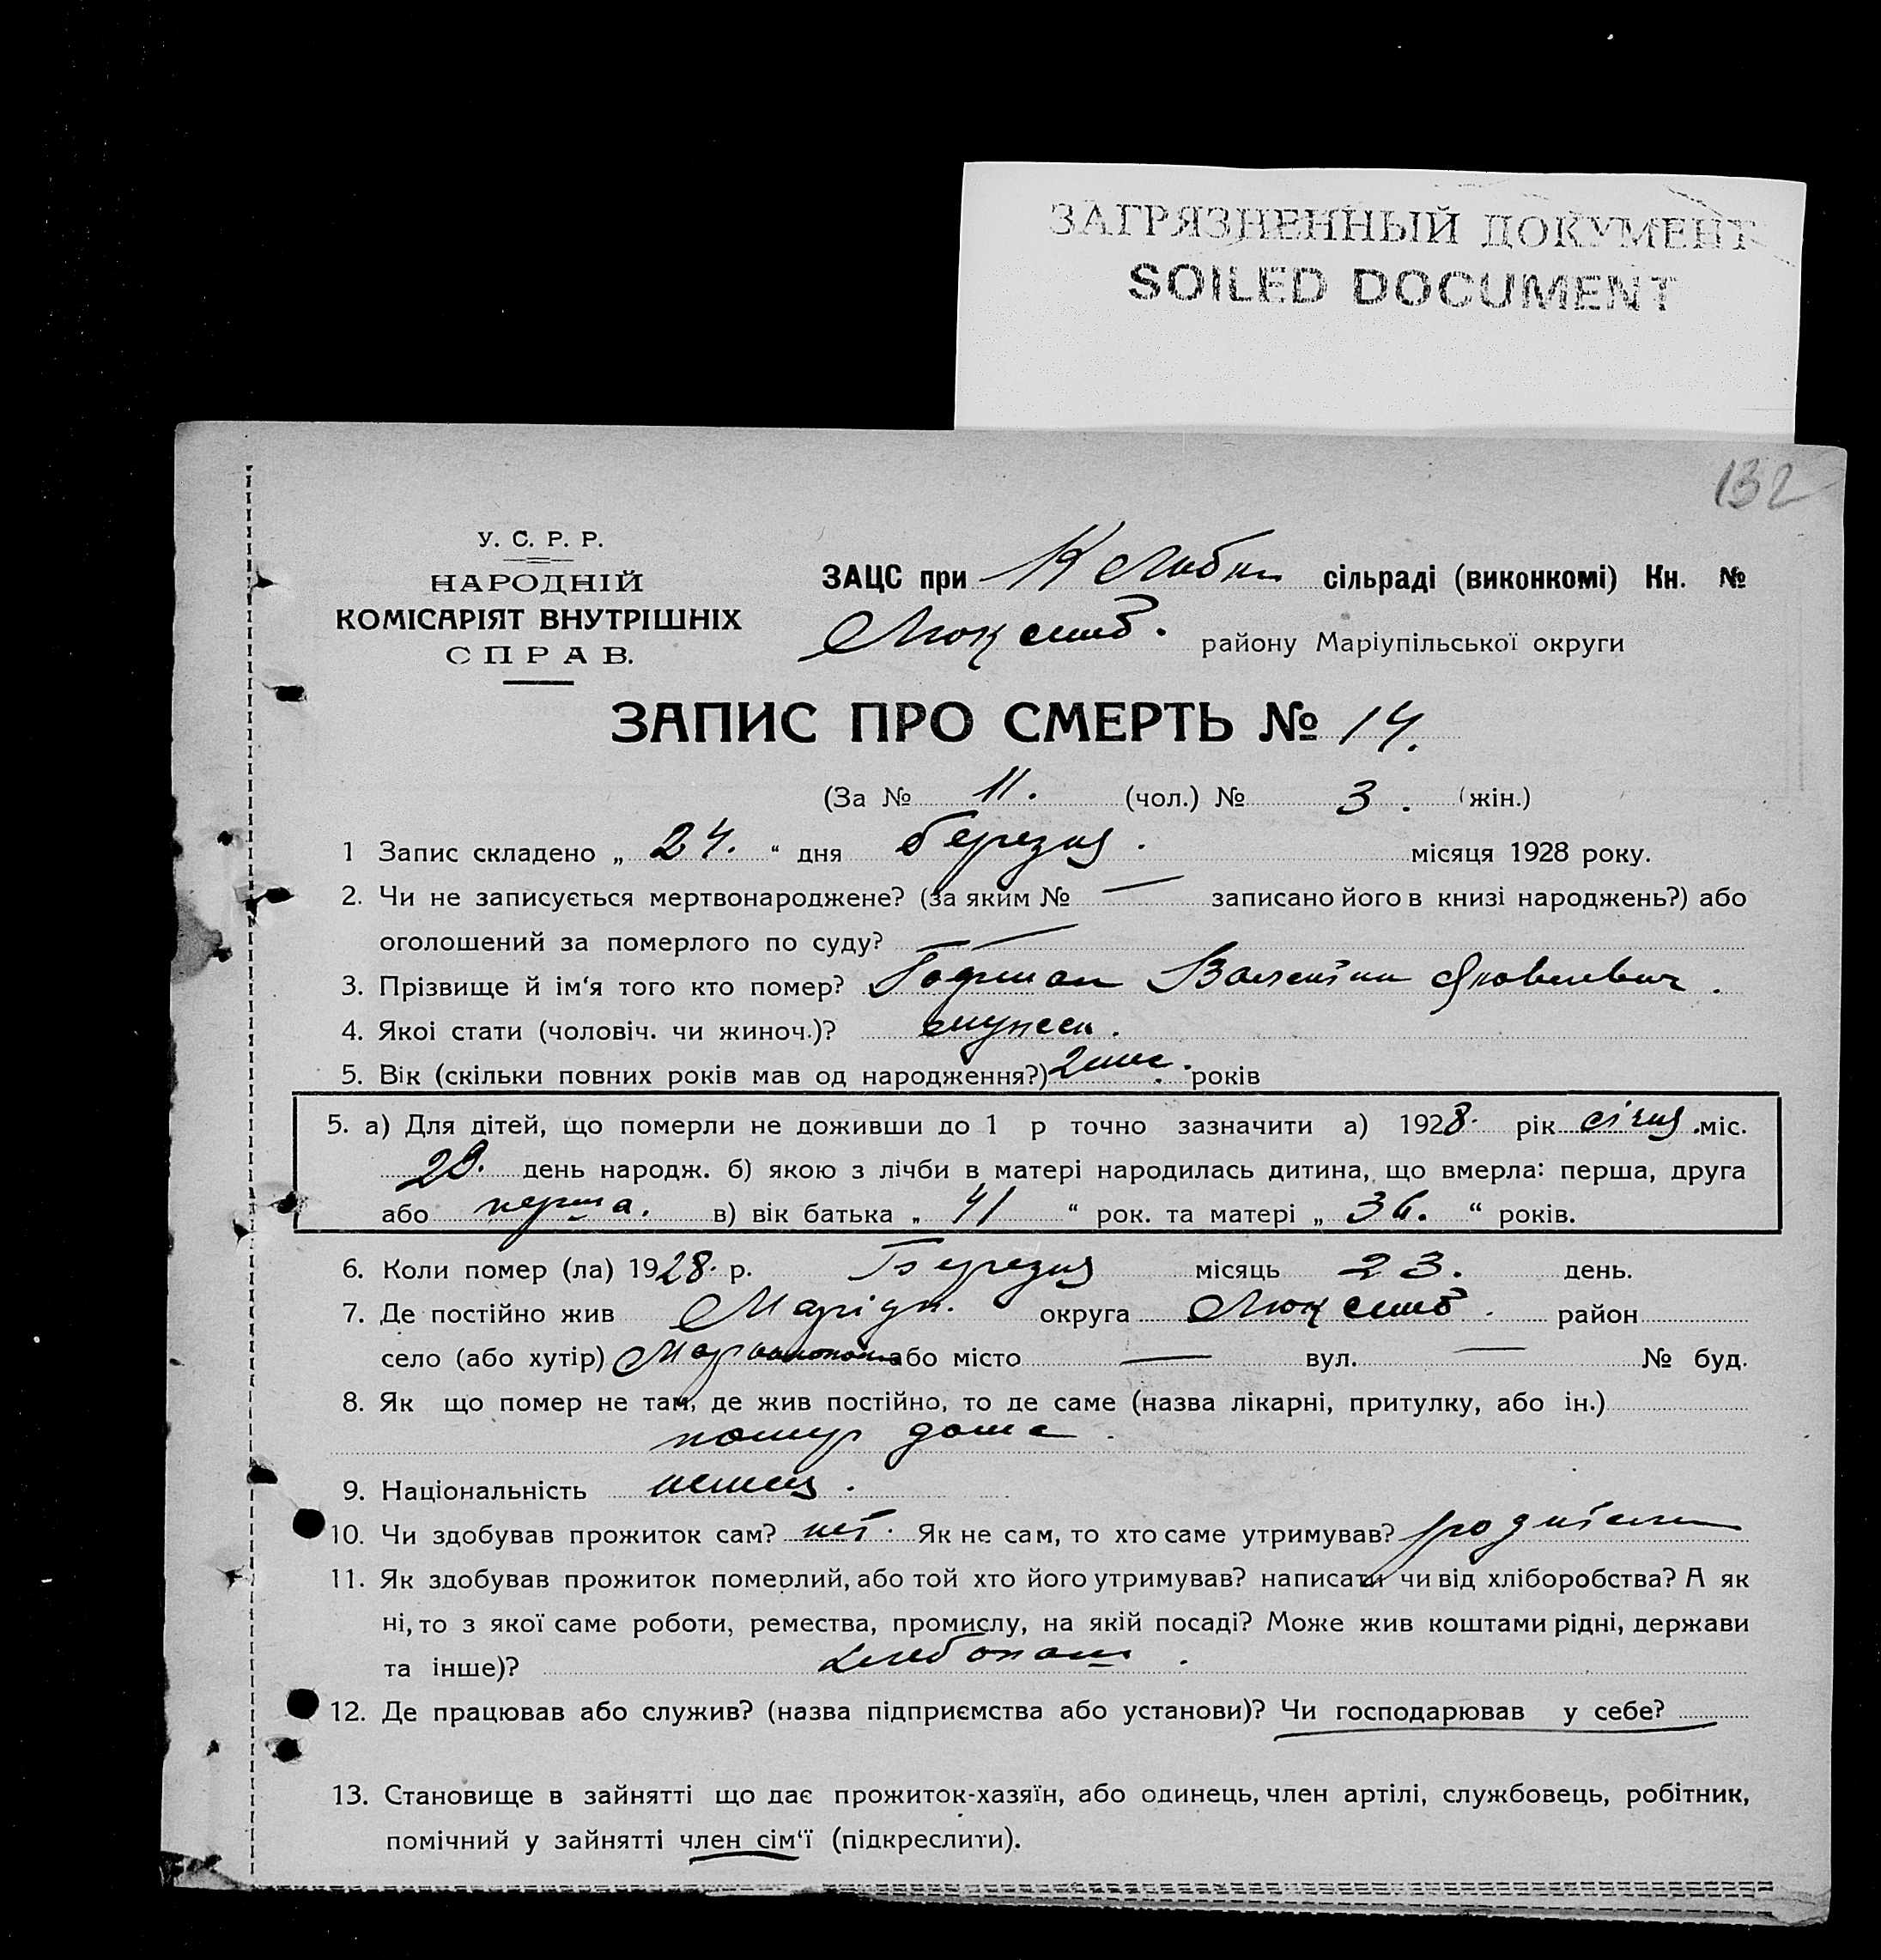 ЗАГРЯЗНЕННЫЙ ДОКУМЕНТ
SOILED DOCUMENT
132
У. С. Р. Р.
НАРОДНІЙ
КОМІСАРІЯТ ВНУТРІШНІХ
СПРАВ.
ЗАЦС при сільраді (виконкомі) Кн. №
Люксемб. району Маріупільської округи
ЗАПИС ПРО СМЕРТЬ № 14.
(За № 11. (чол.) № 3. (жін.)
1 Запис складено „ 24. “ дня березня. місяця 1928 року.
2. Чи не записується мертвонароджене? (за яким № — записано його в книзі народжень?) або
оголошений за померлого по суду? —
3. Прізвище й ім‘я того кто помер? Гофман Валентин Яковлевич.
4. Якоі стати (чоловіч. чи жиноч.)? мужеск.
5. Вік (скільки повних років мав од народження?) 2 мес. років
5. а) Для дітей, що померли не доживши до 1 р точно зазначити а) 1928. рік січня. міс.
день народж. б) якою з лічби в матері народилась дитина, що вмерла: перша, друга
або перша. в) вік батька „ 41 “ рок. та матері „ 36. “ років.
6. Коли помер (ла) 1928. р. Березня місяць 23. день.
7. Де постійно жив Маріуп. округа Люксемб. район
село (або хутір) або місто — вул. — № буд.
8. Як що помер не там, де жив постійно, то де саме (назва лікарні, притулку, або ін.)
помер дома.
9. Національність немец.
10. Чи здобував прожиток сам? нет. Як не сам, то хто саме утримував? родители
11. Як здобував прожиток померлий, або той хто його утримував? написати чи від хліборобства? А як
ні, то з якої саме роботи, ремества, промислу, на якій посаді? Може жив коштами рідні, держави
та інше)? хлебопаш.
12. Де працював або служив? (назва підприємства або установи)? Чи господарював у себе?
13. Становище в зайнятті що дає прожиток-хазяїн, або одинець, член артілі, службовець, робітник,
помічний у зайнятті член сім‘ї (підкреслити).